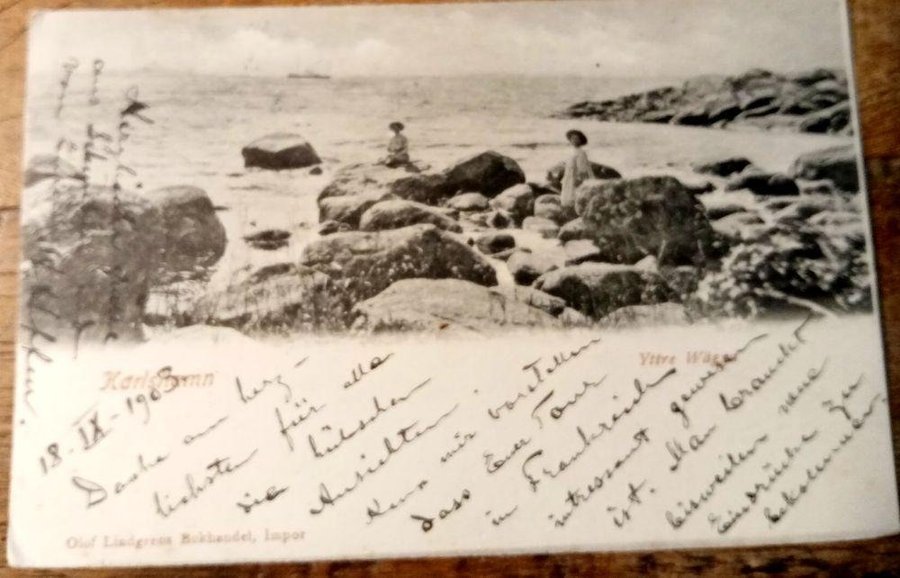 Karlshamn
Yttre Wäggen
18-IX-1903
Danke am herz-
lichsten für alle
die hübschen
Ansichten.
Kann mir vorstellen
dass Euer Tour
in Frankreich
intressant gewesen
ist. Man braucht
bisweilen neue
Eindrücke zu
bekommen
Olof Lindgrens Bokhandel, Impor
Herzlich